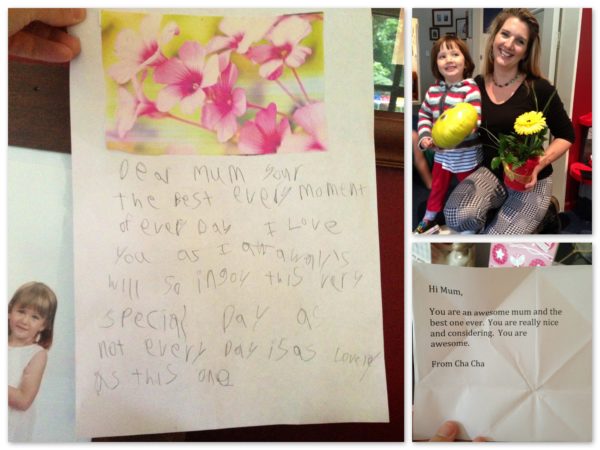 Dear mum your
the Best every moment
of ever Day I Love
You as I allways
will so injoy this very
special Day as
not every Day is as Lovely
as this one
Hi Mum,
You are an awesome mum and the
best one ever. You are really nice
and considering. You are
awesome.
From Cha Cha